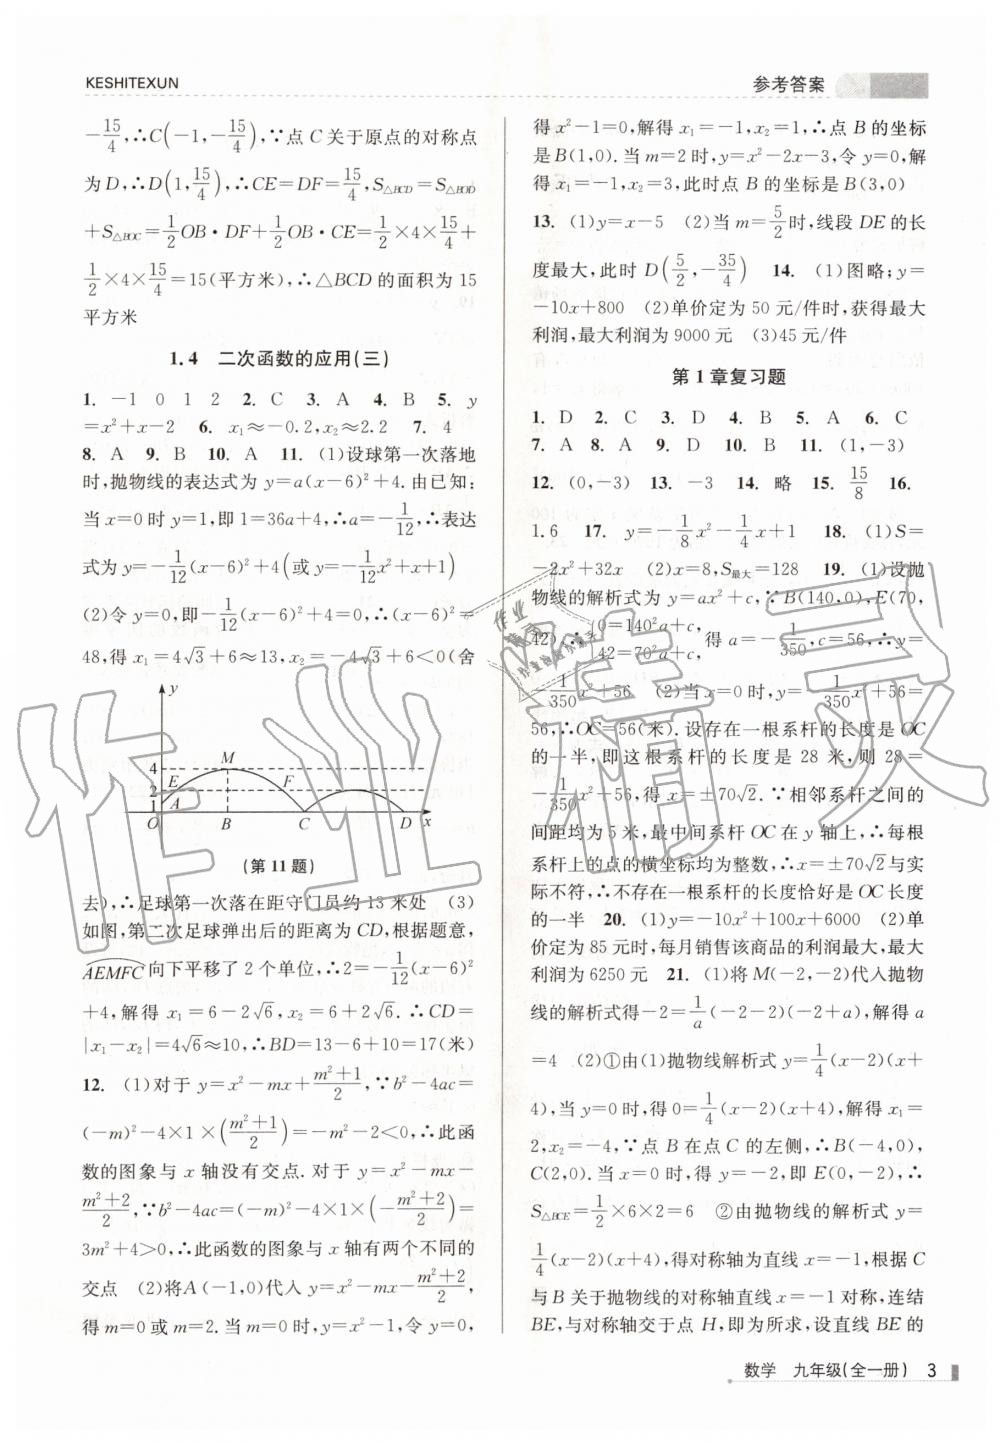 KESHITEXUN
参考答案
-15/4,∴C(-1,-15/4),∵点 C 关于原点的对称点
为 D,∴D(1,15/4),∴CE=DF=15/4,S△BCD=S△BOD
+S△BOC=1/2OB·DF+1/2OB·CE=1/2×4×15/4+
1/2×4×15/4=15(平方米),∴△BCD 的面积为 15
平方米
1.4 二次函数的应用(三)
1. -1 0 1 2 2. C 3. A 4. B 5. y
=x²+x-2 6. x₁≈-0.2,x₂≈2.2 7. 4
8. A 9. B 10. A 11. (1)设球第一次落地
时,抛物线的表达式为 y=a(x-6)²+4.由已知:
当 x=0 时 y=1,即 1=36a+4,∴a=-1/12,∴表达
式为 y=-1/12(x-6)²+4(或 y=-1/12x²+x+1)
(2)令 y=0,即-1/12(x-6)²+4=0,∴(x-6)²=
48,得 x₁=4√3+6≈13,x₂=-4√3+6<0(舍
y
4 M
2 E F
1 A
O B C D x
(第 11 题)
去),∴足球第一次落在距守门员约 13 米处 (3)
如图,第二次足球弹出后的距离为 CD,根据题意,
AEMFC向下平移了 2 个单位,∴2=-1/12(x-6)²
+4,解得 x₁=6-2√6,x₂=6+2√6.∴CD=
|x₁-x₂|=4√6≈10,∴BD=13-6+10=17(米)
12. (1)对于 y=x²-mx+(m²+1)/2,∵b²-4ac=
(-m)²-4×1×((m²+1)/2)=-m²-2<0,∴此函
数的图象与 x 轴没有交点.对于 y=x²-mx-
(m²+2)/2,∵b²-4ac=(-m)²-4×1×(-(m²+2)/2)=
3m²+4>0,∴此函数的图象与 x 轴有两个不同的
交点 (2)将A(-1,0)代入 y=x²-mx-(m²+2)/2,
得 m=0 或 m=2.当 m=0 时,y=x²-1,令 y=0,
得 x²-1=0,解得 x₁=-1,x₂=1,∴点 B 的坐标
是 B(1,0).当 m=2 时,y=x²-2x-3,令 y=0,解
得 x₁=-1,x₂=3,此时点 B 的坐标是 B(3,0)
13. (1)y=x-5 (2)当 m=5/2时,线段 DE 的长
度最大,此时 D(5/2,-35/4) 14. (1)图略;y=
-10x+800 (2)单价定为 50 元/件时,获得最大
利润,最大利润为 9000 元 (3)45 元/件
第 1 章复习题
1. D 2. C 3. D 4. B 5. A 6. C
7. A 8. A 9. D 10. B 11. (1,-3)
12. (0,-3) 13. -3 14. 略 15. 15/8 16.
1.6 17. y=-1/8x²-1/4x+1 18. (1)S=
-2x²+32x (2)x=8,S最大=128 19. (1)设抛
物线的解析式为 y=ax²+c,∵B(140,0),E(70,
42),∴{0=140²a+c, 42=70²a+c, 得 a=-1/350,c=56,∴y=
-1/350x²+56 (2)当 x=0 时,y=-1/350x²+56=
56,∴OC=56(米).设存在一根系杆的长度是 OC
的一半,即这根系杆的长度是 28 米,则 28=
-1/350x²+56,得 x=±70√2.∵相邻系杆之间的
间距均为 5 米,最中间系杆 OC 在 y 轴上,∴每根
系杆上的点的横坐标均为整数,∴x=±70√2与实
际不符,∴不存在一根系杆的长度恰好是 OC 长度
的一半 20. (1)y=-10x²+100x+6000 (2)单
价定为 85 元时,每月销售该商品的利润最大,最大
利润为6250 元 21. (1)将 M(-2,-2)代入抛物
线的解析式得-2=1/a(-2-2)(-2+a),解得 a
=4 (2)①由(1)抛物线解析式 y=1/4(x-2)(x+
4),当 y=0 时,得 0=1/4(x-2)(x+4),解得 x₁=
2,x₂=-4,∵点 B 在点 C 的左侧,∴B(-4,0),
C(2,0).当 x=0 时,得 y=-2,即 E(0,-2),∴
S△BCE=1/2×6×2=6 ②由抛物线的解析式 y=
1/4(x-2)(x+4),得对称轴为直线 x=-1,根据 C
与 B 关于抛物线的对称轴直线 x=-1 对称,连结
BE,与对称轴交于点 H,即为所求,设直线 BE 的
数学 九年级(全一册) 3
作业精灵